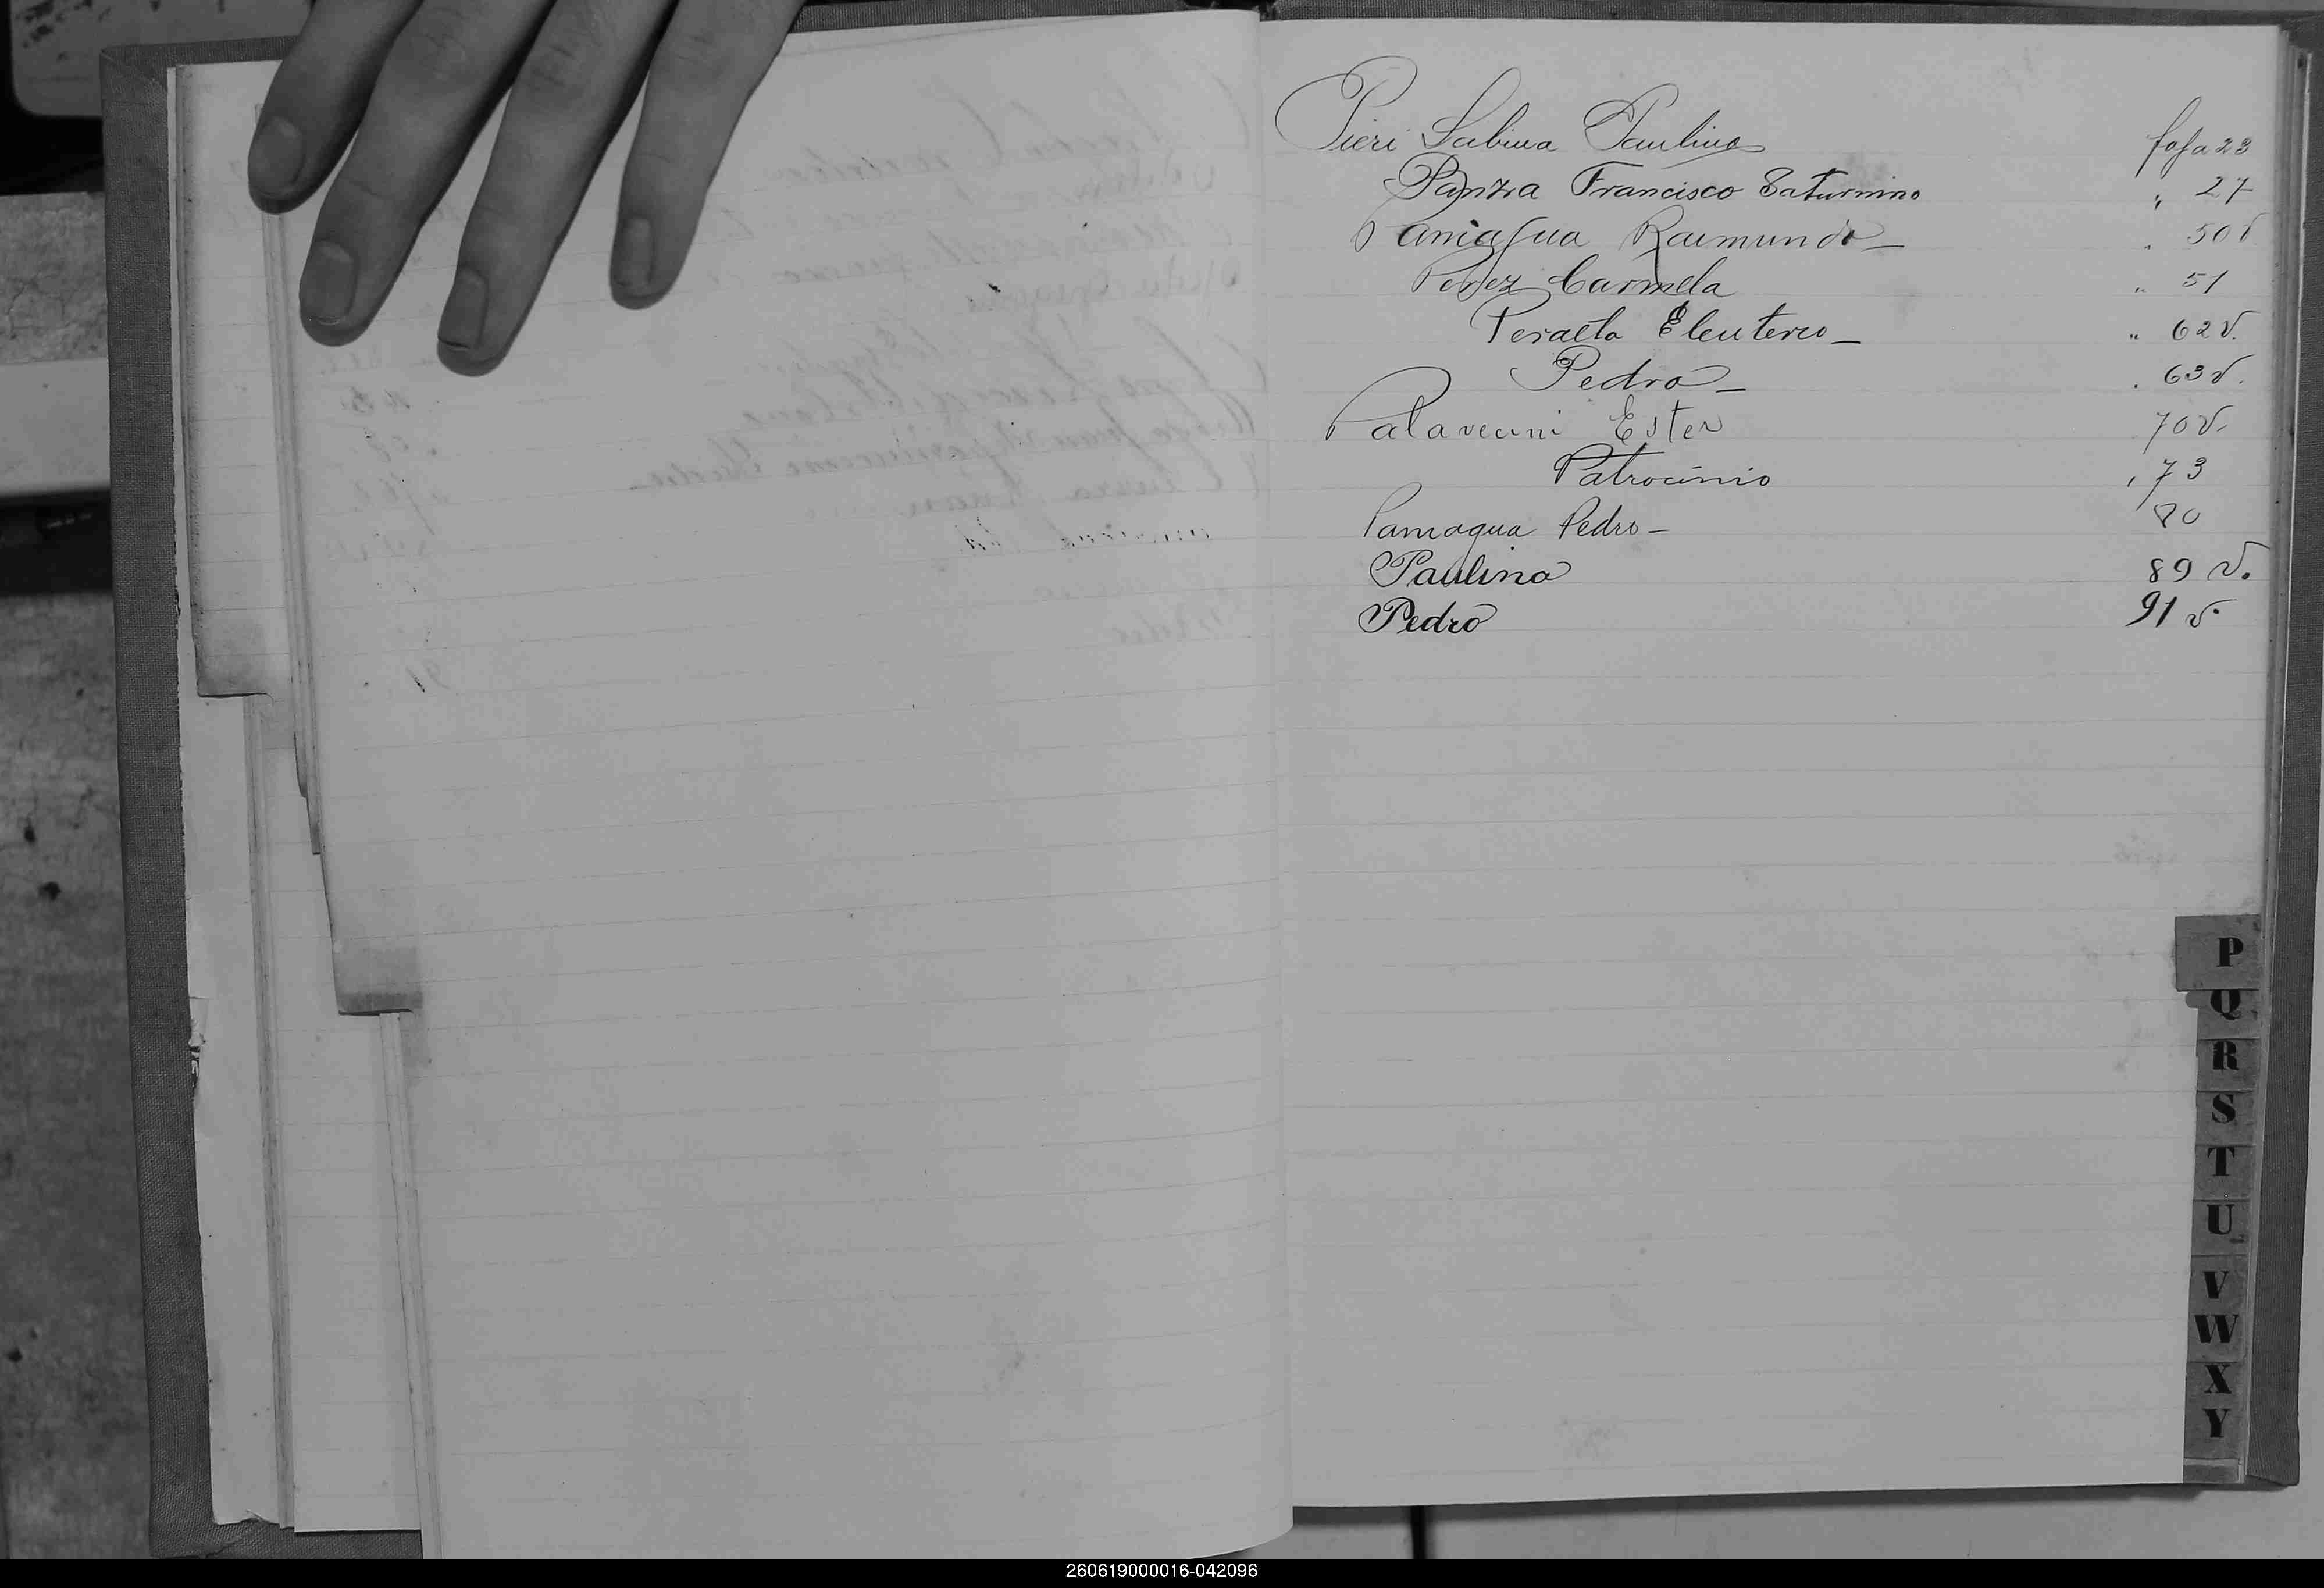 Pieri Sabina Paulina foja 23
Panza Francisco Saturnino " 27
Paniagua Raimundo — " 50 v
Perez Carmela " 51
Peralta Eleuterio — " 62 v.
Pedro — " 63 v.
Palavecini Ester 70 v.
Patrocinio " 73
Paniagua Pedro — 80
Paulina 89 v.
Pedro 91 v.
P
Q
R
S
T
U
V
W
X
Y
260619000016-042096